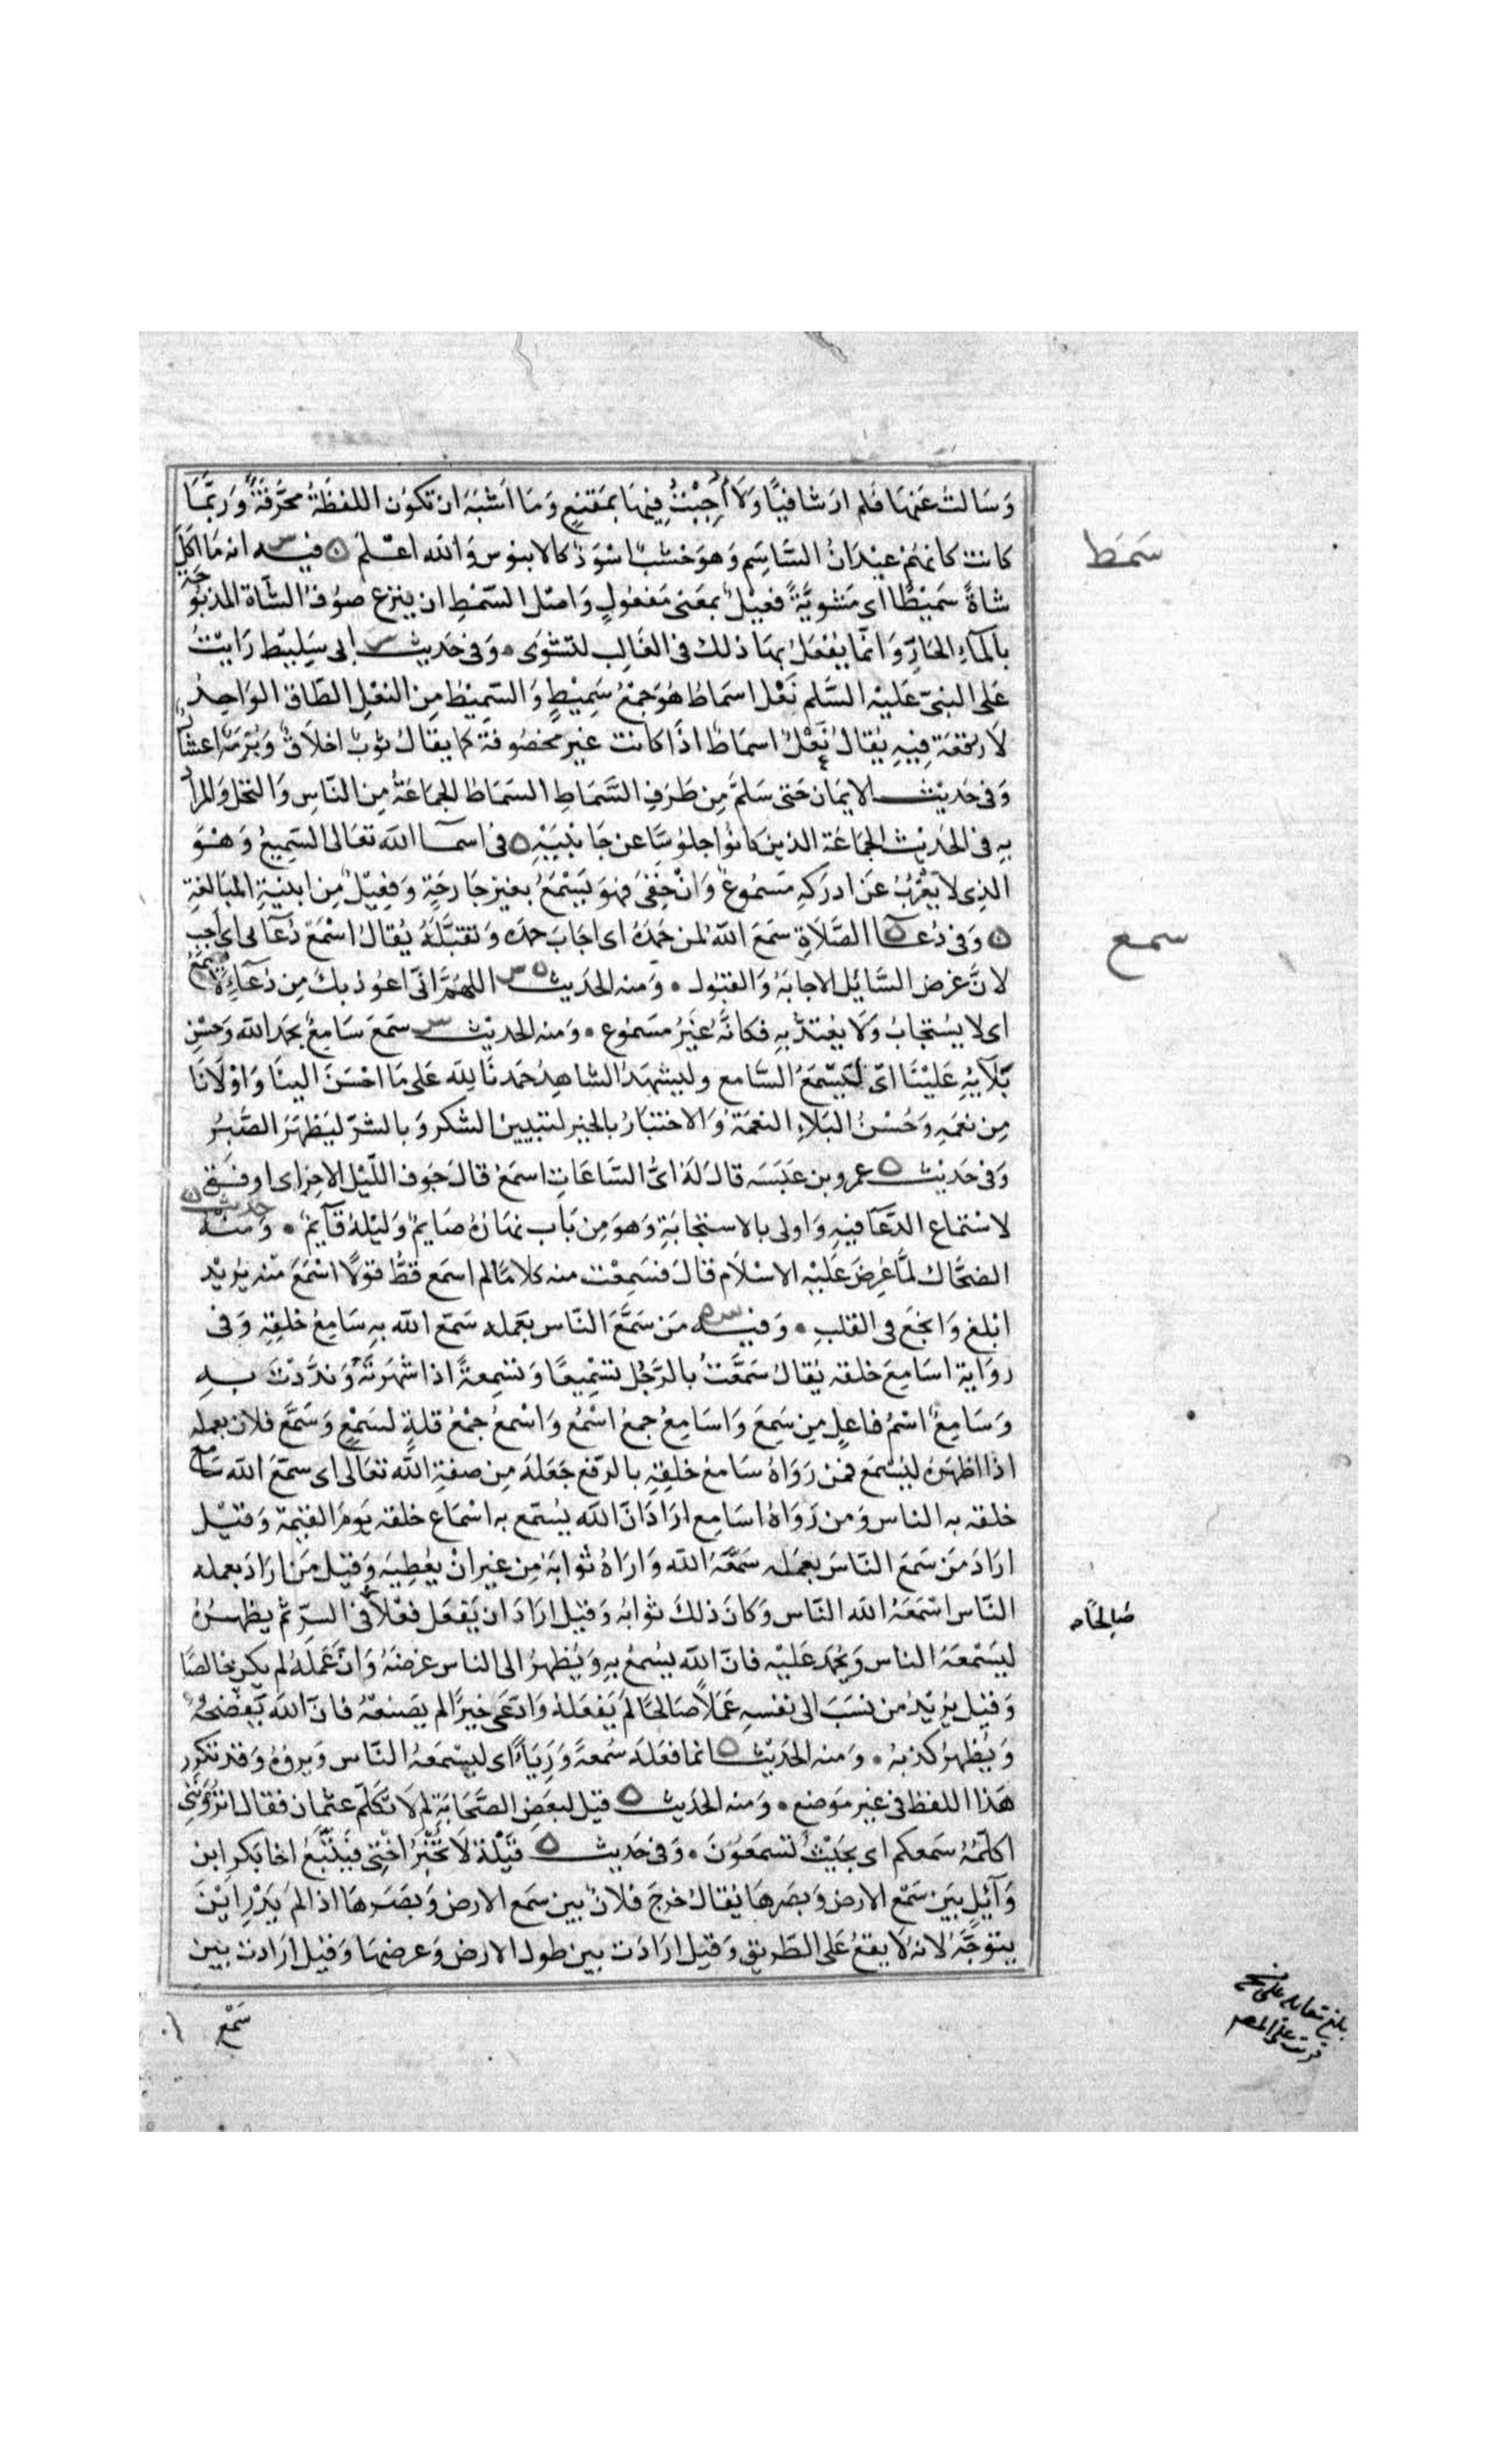 وَسَالتُ عَنهَا فَلم ارَ شافيًا وَلَا اُجِبْتُ فِيهَا بمَقنَعٍ وَمَا اَشبَهَ ان تكوُن اللفظَةُ محَرَّفَةً وَرُبَّمَا
كانت كانهُمْ عِيدَانُ السَّاسَمِ وَهوَ خشَبٌ اسْوَدُ كالابنوس وَالله اعْلمُ ۞ فيـــه انه مَا اكَلَ
سَمَط
شاةً سَميْطًا اى مَشوِيَّةً فعيلٌ بمعَنى مَفعُولٍ وَاصْل السَّمْطِ ان ينزع صوُفُ الشَّاة المذبُوحَةِ
بالمآءِ الحَارِّ وَانَّما يُفْعَلُ بهَا ذلك فى الغَالِب لتشْوَى ۰ وَفى حَديثــــ ابى سَلِيْط رَاَيْتُ
عَلى النبىّ عَليْه السَّلم نَعْل اسمَاطٍ هُوَ جَمْعُ سَمِيْطٍ وَالسَّمِيْطُ مِن النعْلِ الطَّاق الوَاحِدُ
لَا رُقعَة فِيهِ يُقالُ نَعْلٌ اسمَاطٌ اذَا كانت غير مَخصُوفَة كما يقَالُ ثوبٌ اخلَاقٌ وَبُرمَة اعشَارٌ
وَفى حَديْثــــ الايمَان حَتى سَلَّمَ مِن طَرَفِ السَّمَاطِ السّمَاطُ الجمَاعَةُ مِن النّاسِ وَالنخل وَالمرادُ
بهِ فى الحَدِيْث الجمَاعَة الذينَ كانُوا جلوُسًا عن جَانبَيْهِ ۞ فى اسمَــآ الله تعَالى السَّمِيعُ وَهُوَ
الذِى لا يَعْزُبُ عَن ادرَاكِهِ مَسمُوعٌ وَانْ خَفِىَ فهوَ يَسْمَعُ بغير جَارحَةٍ وَفعِيْلٌ مِن ابنيَةِ المبَالغةِ
سمع
۞ وَفى دُعَــآ الصَّلَاةِ سَمعَ اللهُ لمن حَمِدَهُ اى اجَابَ حمدَه وَتقبَّلَهُ يُقالُ اسْمَعْ دُعآئى اى اجبْ
لانَّ غرض السَّائِل الاجابَة وَالقبُول ۰ وَمنه الحَديثــــ اللهُمَّ انِّى اعوُذ بكَ مِن دُعَآءٍ لَا يُسْمَعُ
اى لا يسُتجَابُ وَلَا يعُتدُّ بهِ فكانّهُ غيْرُ مَسموُع ۰ وَمنه الحديْثــــ سَمعَ سَامِعٌ بحَمد الله وَحسْنِ
بَلآئِهِ عَليْنَا اىْ ليَسْمَع السَّامع وليشهَدِ الشاهِدُ حَمدنَا لِله عَلى مَا احْسَنَ الينَا وَاوْلَانَا
مِن نعمَهِ وَحُسْنُ البَلَاءِ النعمَةُ وَالاختبَارُ بالخير لتبيين الشكر وَبالشرّ ليَظهَرَ الصَّبرُ
وَفى حَديْثــــ عمرو بن عَبَسَه قالَ لَهُ اىُّ السَّاعَاتِ اسمَعُ قالَ جَوف اللّيْل الاخِرِ اى اوفقُ
لاسْتماع الدّعَآ فيهِ وَاولى بالاستجَابَةِ وَهوَ مِن بَاب نهَارُه صَايمٌ وَليْلهُ قآئمٌ ۰ وَمنْهُ حديثــــ
الضحَّاك لمَّا عُرِضَ عَليْهِ الاسْلَام قالَ فسَمِعْت منه كلامًا لم اسمَع قطُّ قولًا اسْمَعَ منْه يُريْد
ابْلغ وَانجَعَ فى القلبِ ۰ وَفيــه مَن سَمَّعَ النَّاس بعَمله سَمّع الله بهِ سَامِعُ خَلقِهِ وَفى
روَاية اسَامِعَ خلقه يُقالُ سَمَّعْتُ بالرَّجُل تسْمِيعًا وَتسْمِعةً اذا شهَرْتَهُ وَندَّدْتَ بِــهِ
وَسَامِعٌ اسْمُ فاعِل مِن سَمِعَ وَاسَامِعُ جمعُ اسْمُع وَاسْمعُ جَمْعُ قلةٍ لسَمْعٍ وَسَمَّعَ فلان بعَمله
اذا اظهَرَهُ ليُسْمَعَ فمَن رَوَاهُ سَامعُ خَلقِهِ بالرّفع جَعَلهُ مِن صفةِ الله تعَالى اى سَمّعَ الله سَامِعُ
خلقه به الناس وَمن رَوَاهُ اسَامِع ارَادَ انَّ الله يُسَمّع به اسْمَاع خلقه يَومَ القيمَة وَقيْل
ارَادَ مَن سَمعَ النّاسَ بعمَله سَمَّعَهُ الله وَارَاهُ ثوَابَهُ مِن غيرِ انْ يعُطِيَه وَقيْل مَن ارَادَ بعمله
النَّاس اسْمَعَهُ الله النَّاس وَكانَ ذلكَ ثوابهُ وَقيْل ارَادَ ان يَفْعَل فعْلًا فى السِّرّ ثمّ يظهِرُهُ
صَالِحًا ه
ليَسْمَعَهُ الناس وَيُحْمَد عَليْه فانَّ الله يسُمعُ بهِ وَيُظهِرُ الى الناس غرضَهُ وَانَّ عَمَلَهُ لم يكن خالصًا
وَقيْل يُرِيْدُ من نسَبَ الى نفسِهِ عَمَلًا صَالحًا لَم يَفعَلهُ وَادّعَى خيرًا لم يصنعَهُ فانَّ اللهَ يَفضَحُهُ
وَيُظهرُ كذبهُ ۰ وَمنه الحَدِيْثــــ انما فعَلهُ سُمعَةً وَرِيَآءً اى ليسْمَعهُ النَّاس وَيروْهُ وَقد تكرر
هَذا اللفظ فى غير مَوضِع ۰ وَمنه الحَديثــــ قيْل لبعَض الصَّحَابَةِ لِم لَا تكَلّم عثمان فقال اترُوننى
اكلّمهُ سَمعكم اى بحَيْثُ تسمَعُوْنَ ۰ وَفى حَديثــــ قيْلة لَا تُخْبرْ اخْتى فتَتَّبعُ اخا بَكرِ ابن
وَآئِلٍ بَيْن سَمْع الارض وَبصَرهَا يُقالُ خرَجَ فلانٌ بين سَمع الارض وَبصَرهَا اذا لم يَدْرِ ايْنَ
يتوَجّهُ لانهُ لا يقعُ عَلى الطّريقِ وَقيْل ارَادَت بين طول الارض وَعرضهَا وَقيْل ارَادت بين
سَمْع